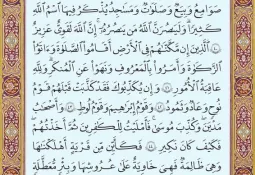 صَوَٰمِعُ وَبِيَعٌ وَصَلَوَٰتٌ وَمَسَٰجِدُ يُذْكَرُ فِيهَا ٱسْمُ ٱللَّهِ
كَثِيرًا ۗ وَلَيَنصُرَنَّ ٱللَّهُ مَن يَنصُرُهُۥٓ ۗ إِنَّ ٱللَّهَ لَقَوِىٌّ عَزِيزٌ ۝٤٠
ٱلَّذِينَ إِن مَّكَّنَّٰهُمْ فِى ٱلْأَرْضِ أَقَامُوا۟ ٱلصَّلَوٰةَ وَءَاتَوُا۟
ٱلزَّكَوٰةَ وَأَمَرُوا۟ بِٱلْمَعْرُوفِ وَنَهَوْا۟ عَنِ ٱلْمُنكَرِ ۗ وَلِلَّهِ
عَٰقِبَةُ ٱلْأُمُورِ ۝٤١ وَإِن يُكَذِّبُوكَ فَقَدْ كَذَّبَتْ قَبْلَهُمْ قَوْمُ
نُوحٍ وَعَادٌ وَثَمُودُ ۝٤٢ وَقَوْمُ إِبْرَٰهِيمَ وَقَوْمُ لُوطٍ ۝٤٣ وَأَصْحَٰبُ
مَدْيَنَ ۖ وَكُذِّبَ مُوسَىٰ فَأَمْلَيْتُ لِلْكَٰفِرِينَ ثُمَّ أَخَذْتُهُمْ ۖ
فَكَيْفَ كَانَ نَكِيرِ ۝٤٤ فَكَأَيِّن مِّن قَرْيَةٍ أَهْلَكْنَٰهَا
وَهِىَ ظَالِمَةٌ فَهِىَ خَاوِيَةٌ عَلَىٰ عُرُوشِهَا وَبِئْرٍ مُّعَطَّلَةٍ